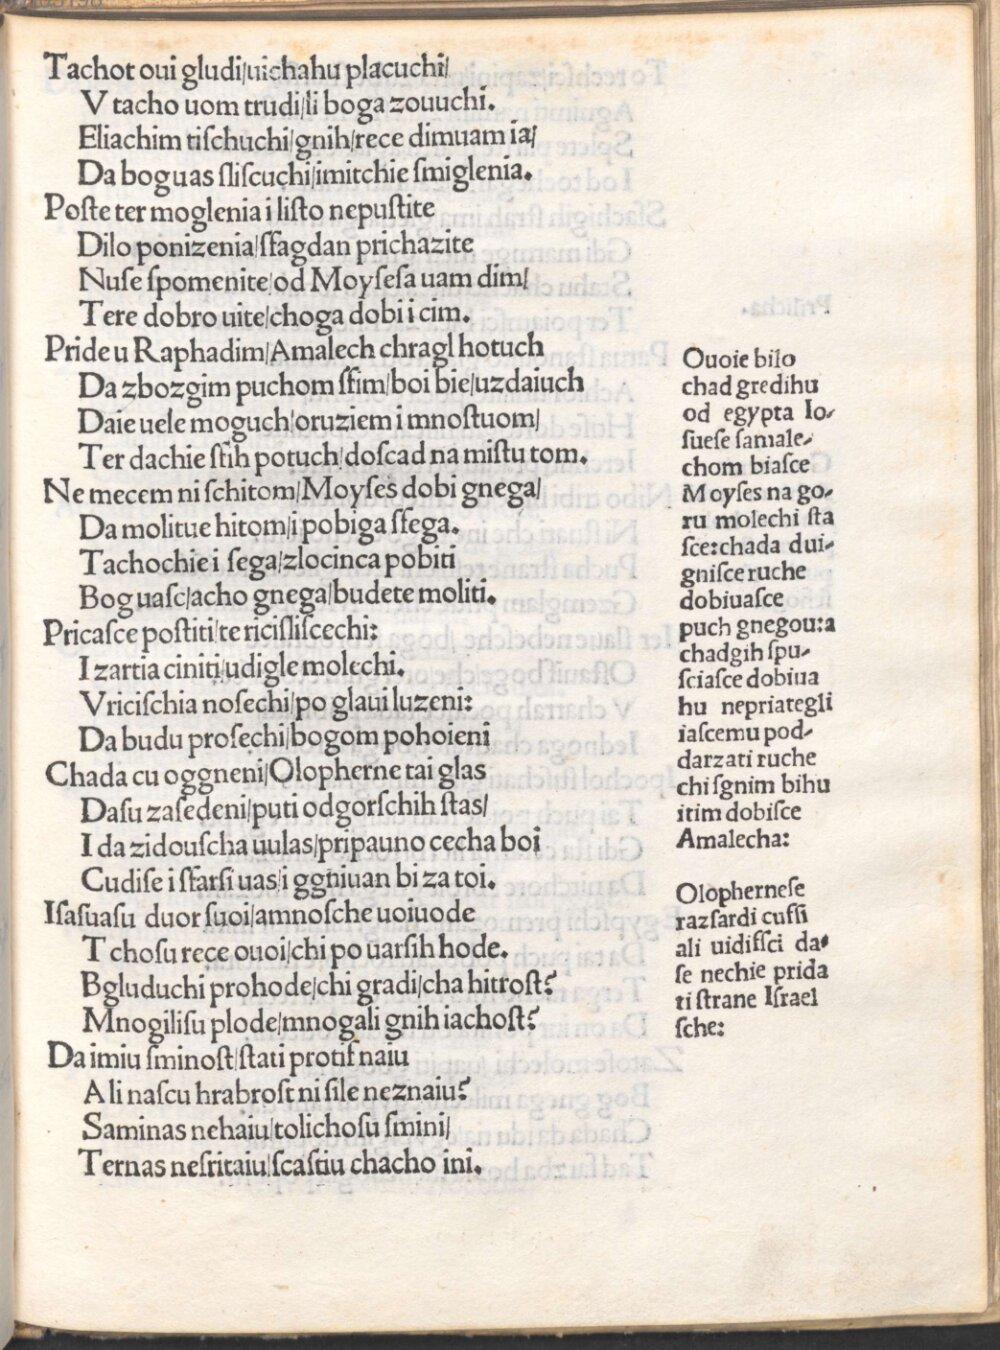 Tachot oui gludi/uichahu placuchi/
V tacho uom trudi/li boga zouuchi.
Eliachim tiſchuchi/gnih/rece dimuam ia/
Da boguas ſliſcuchi/imitchie ſmiglenia.
Poſte ter moglenia i liſto nepuſtite
Dilo ponizenia/ſſagdan prichazite
Nuſe ſpomenite/od Moyſeſa uam dim/
Tere dobro uite/choga dobi i cim.
Pride u Raphadim/Amalech chragl hotuch
Da zbozgim puchom ſſim/boi bie/uzdaiuch
Daie uele moguch/oruziem i mnoſtuom/
Ter dachie ſtih potuch/doſcad na miſtu tom.
Ne mecem ni ſchitom/Moyſes dobi gnega/
Da molitue hitom/i pobiga ſſega.
Tachochie i ſega/zlocinca pobiti
Bog uaſc/acho gnega/budete moliti.
Pricaſce poſtiti/te riciſliſcechi:
I zartia ciniti/udigle molechi.
Vriciſchia noſechi/po glaui luzeni:
Da budu proſechi/bogom pohoieni
Chada cu oggneni/Olopherne tai glas
Daſu zaſedeni/puti odgorſchih ſtas/
I da zidouſcha uulas/pripauno cecha boi
Cudiſe i ſſarſi uas/i ggniuan bi za toi.
Iſaſuaſu duor ſuoi/amnoſche uoiuode
T choſu rece ouoi/chi po uarſih hode.
Bgluduchi prohode/chi gradi/cha hitroſt?
Mnogiliſu plode/mnogali gnih iachoſt?
Da imiu ſminoſt/ſtati protiſ naiu
A li naſcu hrabroſt ni ſile neznaiu?
Saminas nehaiu/tolichoſu ſmini/
Ternas neſritaiu/ſcaſtiu chacho ini.

Ouoie bilo
chad gredihu
od egypta Io-
ſueſe ſamale-
chom biaſce
Moyſes na go-
ru molechi ſta
ſce:chada dui-
gniſce ruche
dobiuaſce
puch gnegou:a
chadgih ſpu-
ſciaſce dobiua
hu nepriategli
iaſcemu pod-
darzati ruche
chi ſgnim bihu
itim dobiſce
Amalecha:

Olopherneſe
razſardi cuſſi
ali uidiſſci da
ſe nechie prida
ti ſtrane Iſrael
ſche: